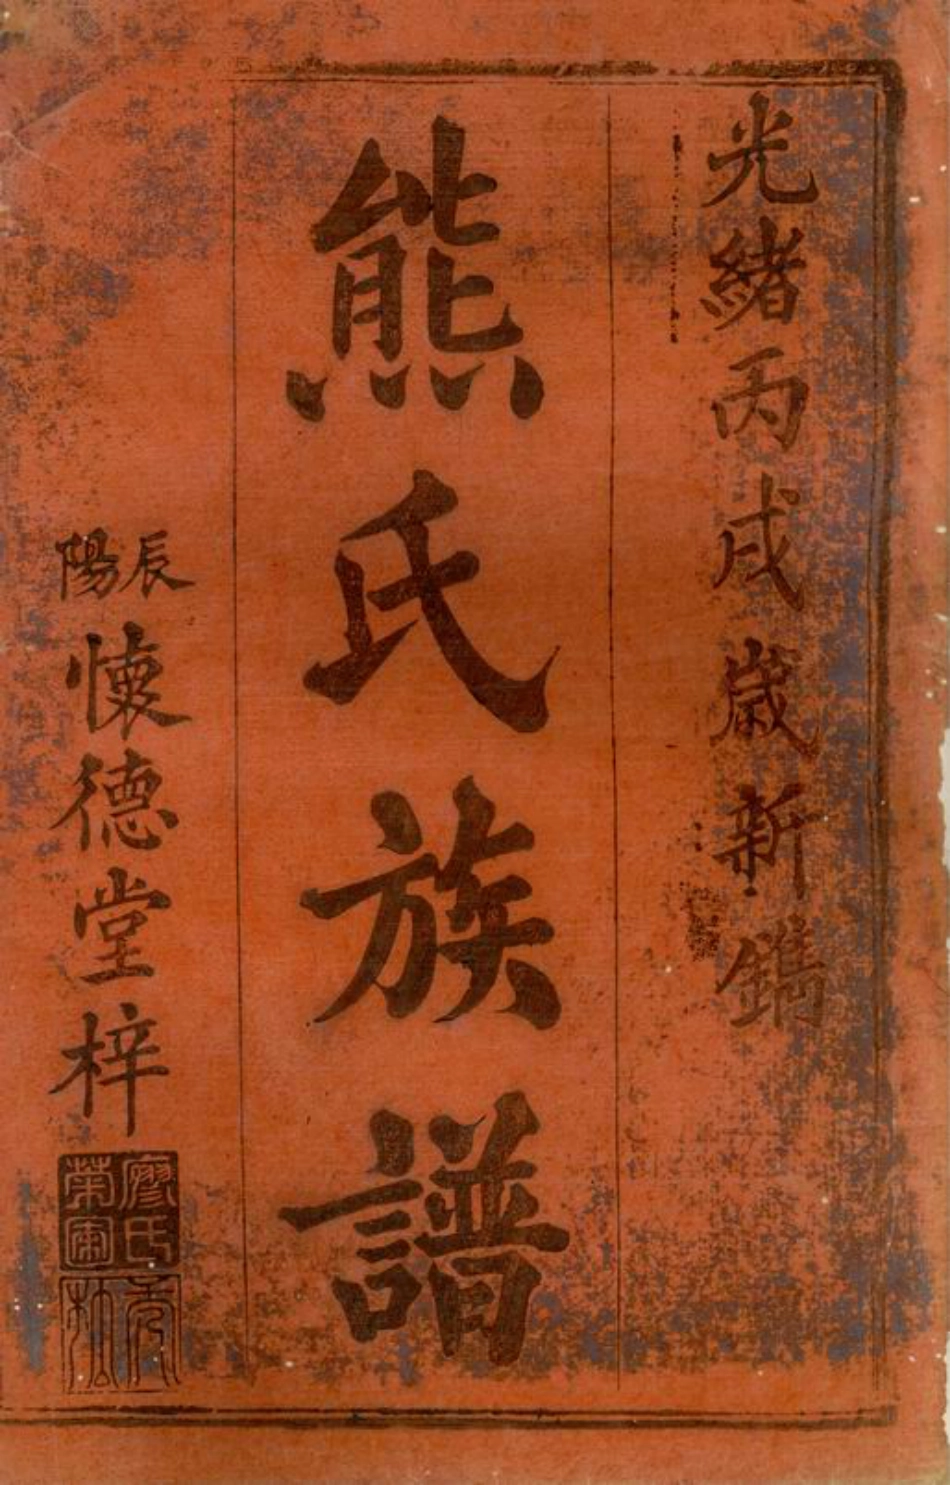 光緒丙戌歲新鐫
熊氏族譜
辰陽
懷德堂梓
廖氏